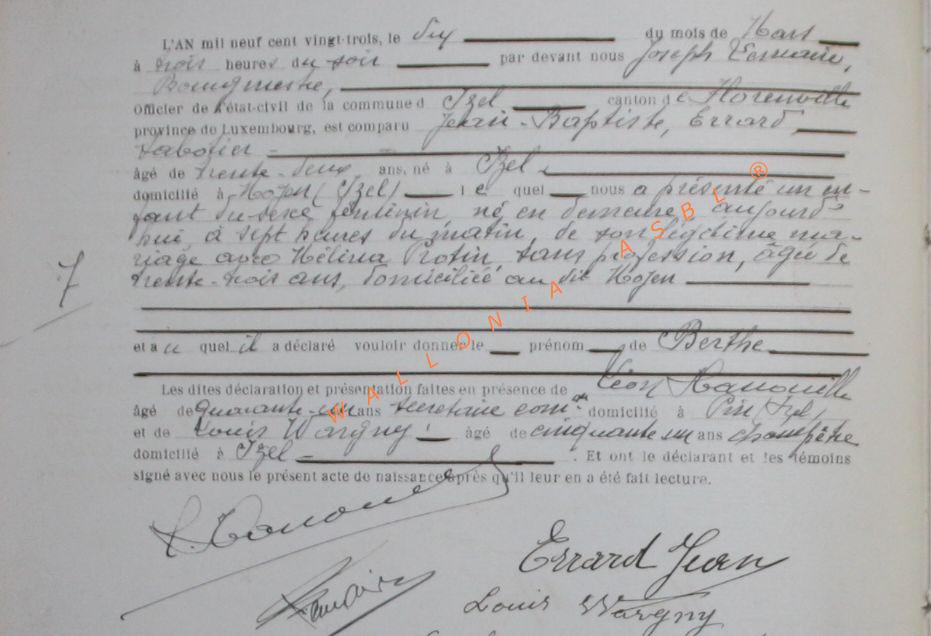 L'AN mil neuf cent vingt-trois, le dix du mois de Mars
à trois heures du soir par devant nous Joseph Lemaire,
Bourgmestre,
officier de l'état-civil de la commune d Izel canton de Florenville
province de Luxembourg, est comparu Jean-Baptiste, Errard
sabotier
âgé de trente-deux ans, né à Izel
domicilié à Moyen (Izel) le quel nous a présenté un en-
fant du sexe féminin, né en demeure, aujourd'
hui, à sept heures du matin, de son légitime ma-
riage avec Hélina Rotin, sans profession, âgée de
trente-trois ans, domiciliée au dit Moyen
7
et au quel il a déclaré vouloir donner le prénom de Berthe
Les dites déclaration et présentation faites en présence de Léon
âgé de quarante-un ans secrétaire comal domicilié à Pin, Izel,
et de Louis Wargny âgé de cinquante un ans champêtre
domicilié à Izel . Et ont le déclarant et les témoins
signé avec nous le présent acte de naissance après qu'il leur en a été fait lecture.
Errard Jean
Lemaire
Louis Wargny
WALLONIA ASBL ®